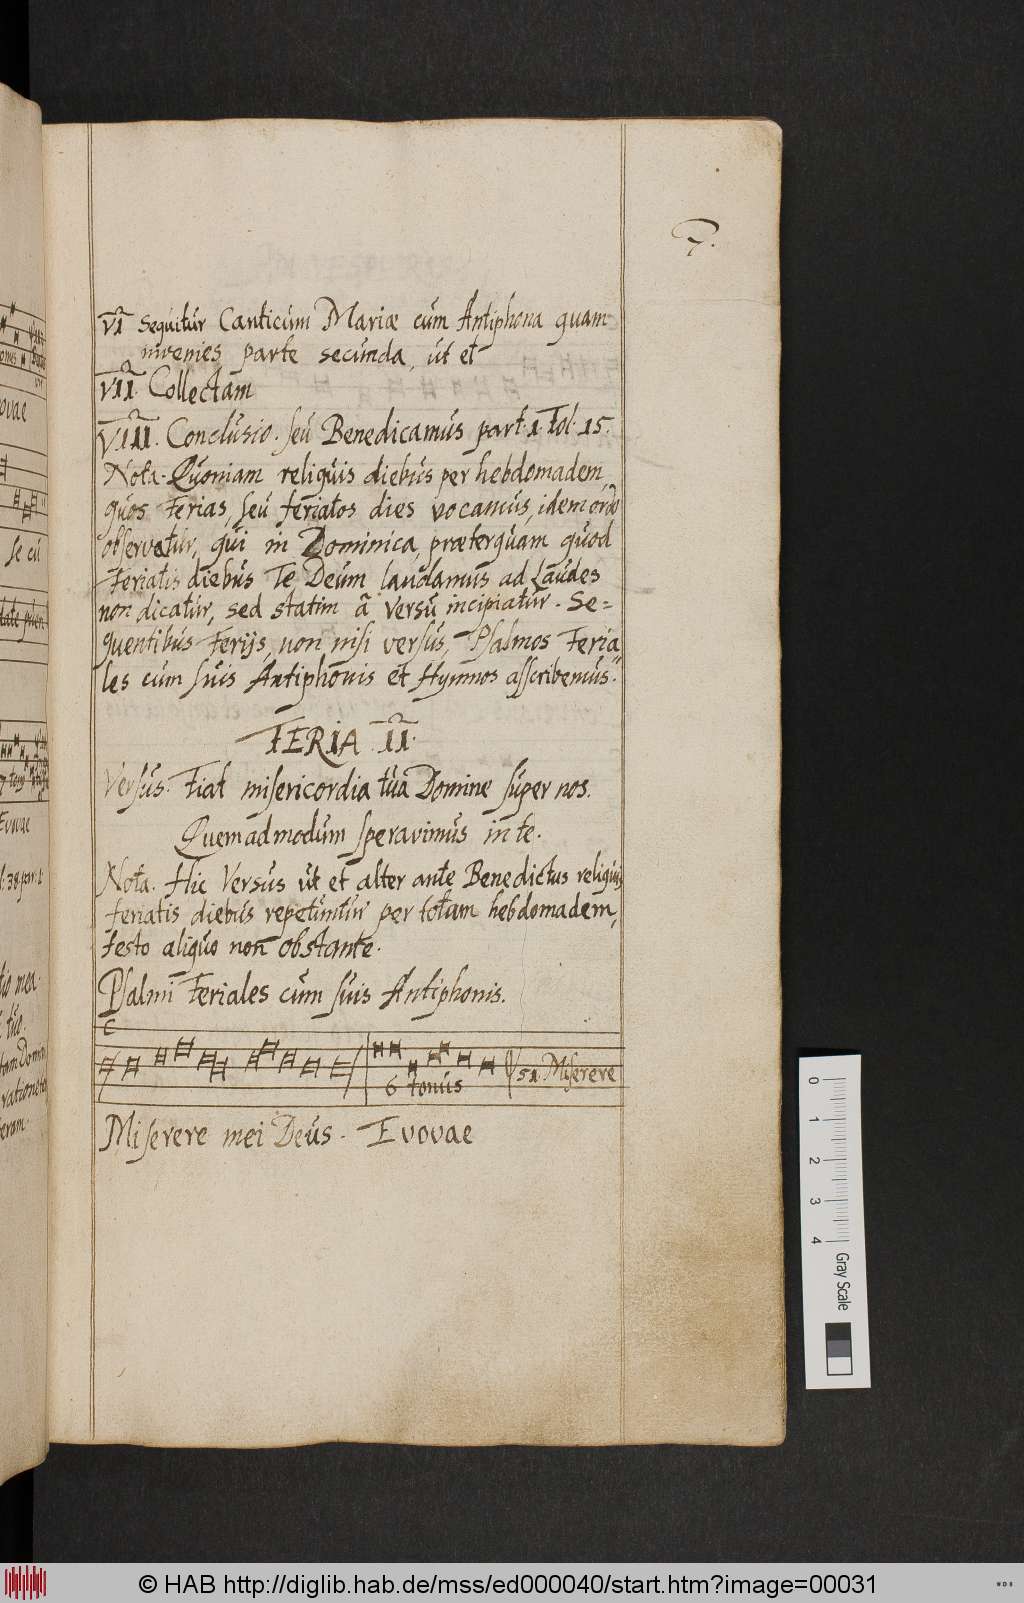 7.
VI Sequitur Canticum Mariæ cum Antiphona quam
invenies parte secunda, ut et
VII. Collectam
VIII. Conclusio. seu Benedicamus part. 1. Fol. 15.
Nota. Quoniam reliquis diebus per hebdomadem,
quos Ferias, seu feriatos dies vocamus, idem ordo
observetur, qui in Dominica, præterquam quod
Feriatis diebus Te Deum laudamus ad Laudes
non dicatur, sed statim â versu incipiatur. Se=
quentibus Ferijs, non nisi versus, Psalmos Feria=
les cum suis Antiphonis et Hymnos asscribemus.
FERIA II.
Versus. Fiat misericordia tua Domine super nos.
Quemadmodum speravimus in te.
Nota. Hic Versus ut et alter ante Benedictus reliquis
feriatis diebus repetuntur per totam hebdomadem,
festo aliquo non obstante.
Psalmi Feriales cum suis Antiphonis.
C
6 tonus 51. Miserere
Miserere mei Deus. Evovae
0 1 2 3 4 Gray Scale
© HAB http://diglib.hab.de/mss/ed000040/start.htm?image=00031